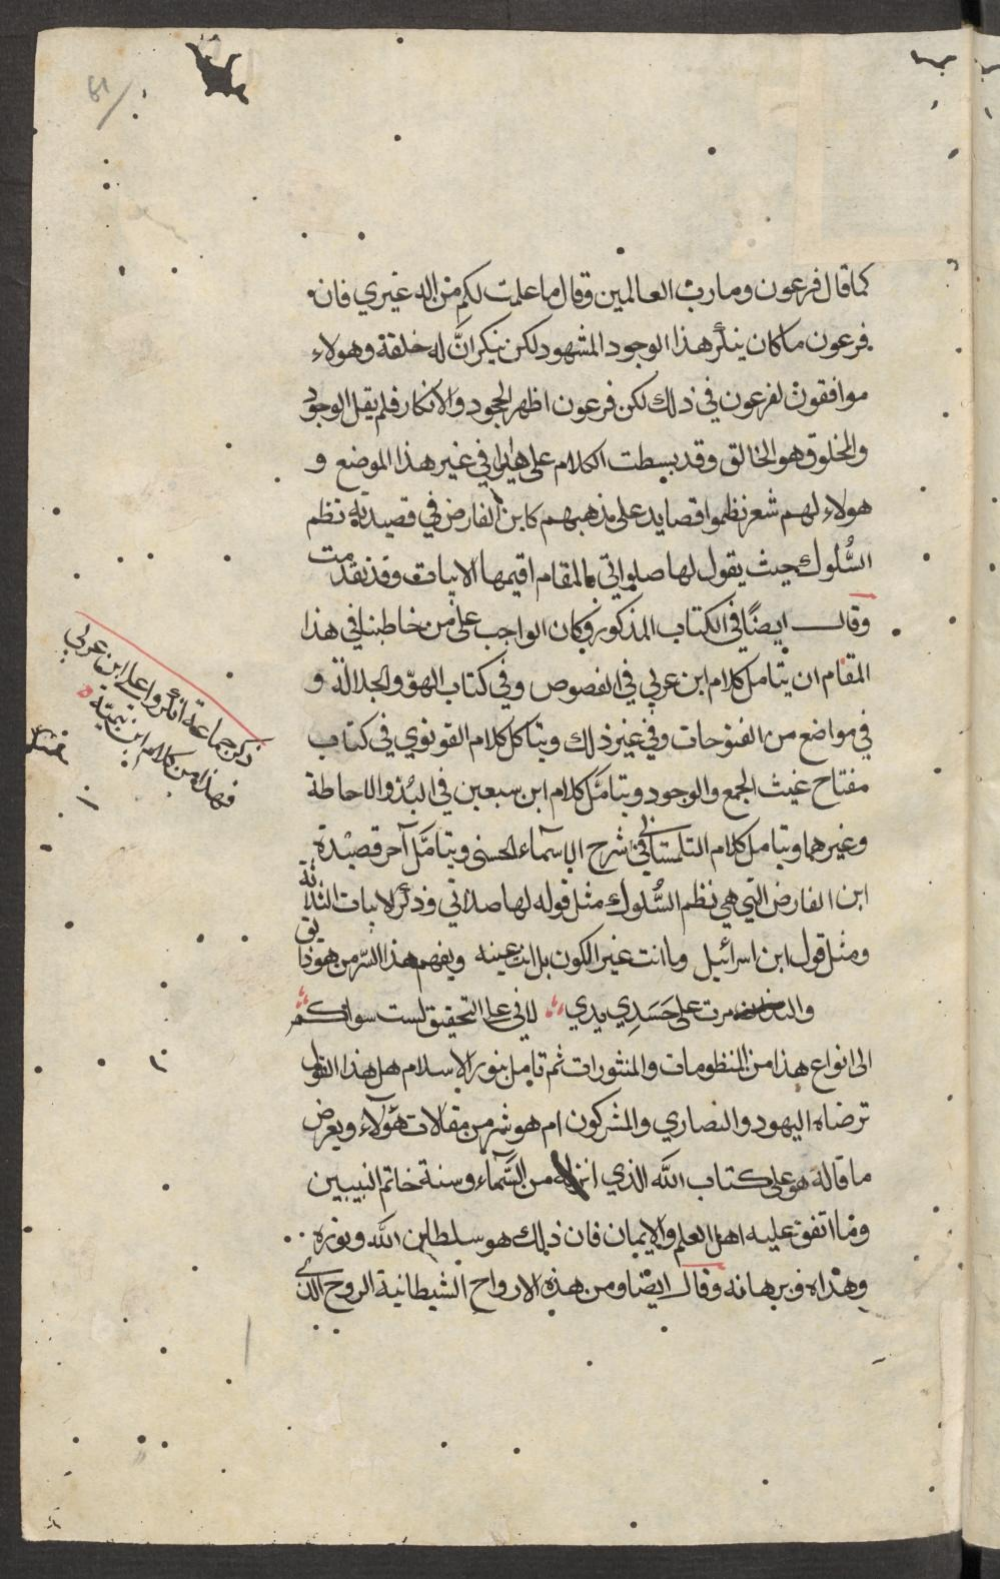 كما قال فرعون وما رب العالمين وقال ما علمت لكم من اله غيري فان
فرعون ما كان ينكر هذا الوجود المشهود لكن ينكر انّ له خلقة وهولاء
موافقون لفرعون في ذلك لكن فرعون اظهر الجحود والانكار فلم يقل الوجود
والمخلوق هو الخالق وقد بسطت الكلام على هذا في غير هذا الموضع و
هولاء لهم شعر نظموا قصايد على مذهبهم كابن الفارض في قصيدته نظم
السُّلوك حيث يقول لها صلواتي بالمقام اقيمها الابيات وقد تقدمت
وقال ايضًا في الكتاب المذكور وكان الواجب على من خاطبنا في هذا
المقام ان يتامل كلام ابن عربي في الفصوص وفي كتاب الهوّ والجلالة و
في مواضع من الفتوحات وفي غير ذلك ويتامل كلام القونوي في كتاب
مفتاح غيث الجمع والوجود ويتامّل كلام ابن سبعين في البُدّ والاحاطة
وغيرهما ويتامل كلام التلمستاني في شرح الاسمآء الحسنى ويتامّل آخر قصيدة
ابن الفارض التي هي نظم السُّلوك مثل قوله لها صلاتي وذكر الابيات الثلاثة
ومثل قول ابن اسرائيل وما انت غير الكون بل انت عينه ويفهم هذا السّر من هو ذايق
والتذ مرت على جَسَدِي يدي لاني على التحقيق لست سواكم
الى انواع هذا من المنظومات والمنثورات ثم تامل بنور الاسلام هل هذا القول
ترضاه اليهود والنصاري والمشركون ام هو شر من مقالات هؤلآء ويعرض
ما قاله هو على كتاب الله الذي انزله من السَّمآء وسنة خاتم النبيبين
وما اتفق عليه اهل العلم والايمان فان ذلك هو سلطان الله ونوره
وهداه وبرهانه وقال ايضا ومن هذه الارواح الشيطانية الروح الذي
ذكر جماعة انكروا على ابن عربي
فهذا من كلام ابن تيمية